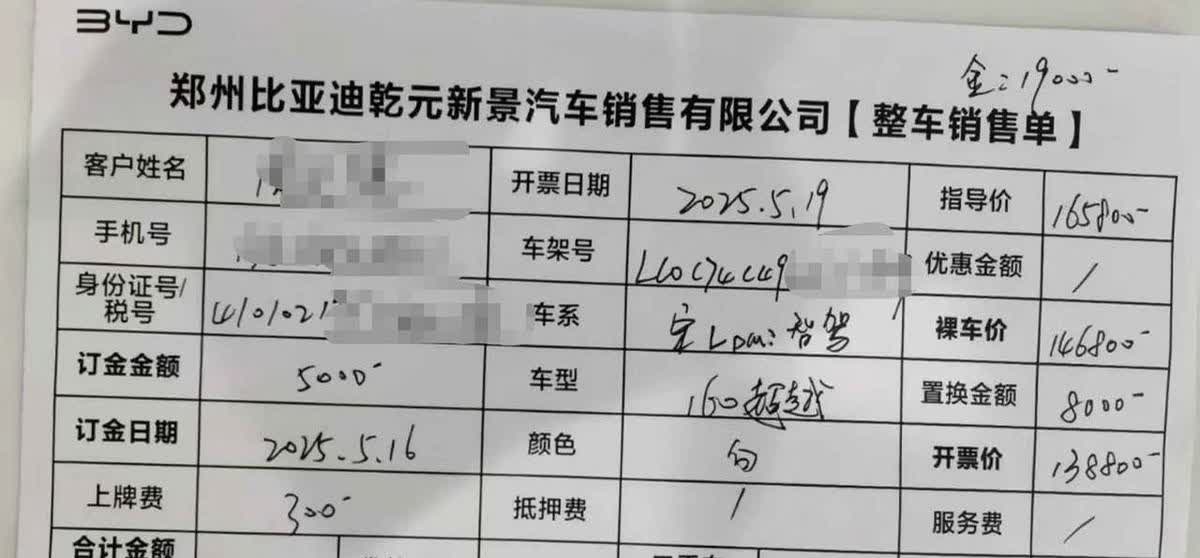 BYD
金:19000-
郑州比亚迪乾元新景汽车销售有限公司【整车销售单】
客户姓名 开票日期 2025.5.19 指导价 165800-
手机号 车架号 LC0C74C49 优惠金额 /
身份证号/税号 410102 车系 宋L DM-i 智驾 裸车价 146800-
订金金额 5000- 车型 160超越 置换金额 8000-
订金日期 2025.5.16 颜色 开票价 138800-
上牌费 300- 抵押费 / 服务费 /
合计金额